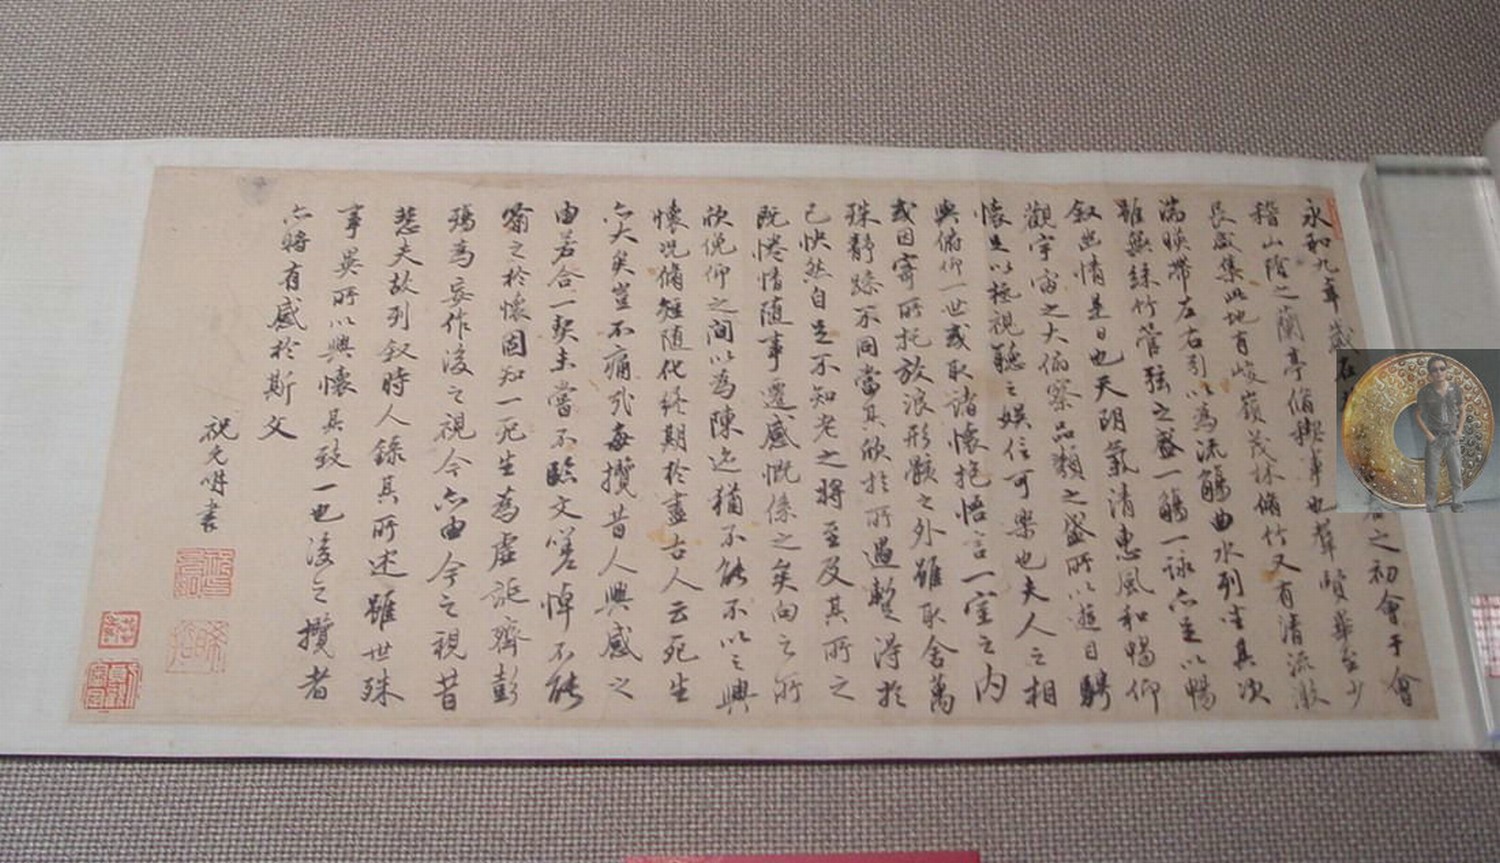 永和九年歲在春之初會于會
稽山陰之蘭亭脩禊事也羣賢畢至少
長咸集此地有峻嶺茂林脩竹又有清流激
湍暎帶左右引以為流觴曲水列坐其次
雖無絲竹管弦之盛一觴一詠亦足以暢
叙幽情是日也天朗氣清惠風和暢仰
觀宇宙之大俯察品類之盛所以遊目騁
懷足以極視聽之娛信可樂也夫人之相
與俯仰一世或取諸懷抱悟言一室之內
或因寄所托放浪形骸之外雖取舍萬
殊靜躁不同當其欣於所遇蹔得於
己快然自足不知老之將至及其所之
既惓情随事遷感慨係之矣向之所
欣俛仰之間以為陳迹猶不能不以之興
懷况脩短随化終期於盡古人云死生
亦大矣豈不痛哉每攬昔人興感之
由若合一契未嘗不臨文嗟悼不能
喻之於懷固知一死生為虛誕齊彭
殤為妄作後之視今亦由今之視昔
悲夫故列叙時人錄其所述雖世殊
事異所以興懷其致一也後之攬者
亦將有感於斯文
祝允明書